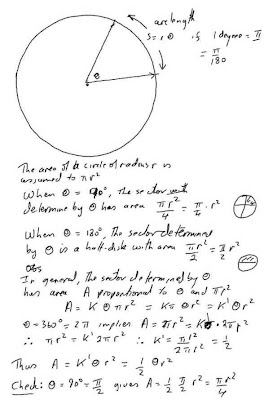 arc length
s = r θ if 1 degree = π
= π/180
θ
The area of a circle of radius r is
assumed to πr²
When θ = 90°, the sector
determine by θ has area πr²/4 = π/4 · r²
When θ = 180°, the sector determined
by θ is a half-disk with area πr²/2 = π/2 r²
In general, the sector determined by θ
has area A proportional to θ and πr²
A = K θ π r² = Kπ θ r² = K' θ r²
θ = 360° = 2π implies A = πr² = K' · 2π r²
∴ πr² = K' 2πr² ∴ K' = πr²/2πr² = 1/2
Thus A = K' θ r² = 1/2 θ r²
Check: θ = 90° = π/2 gives A = 1/2 π/2 r² = πr²/4